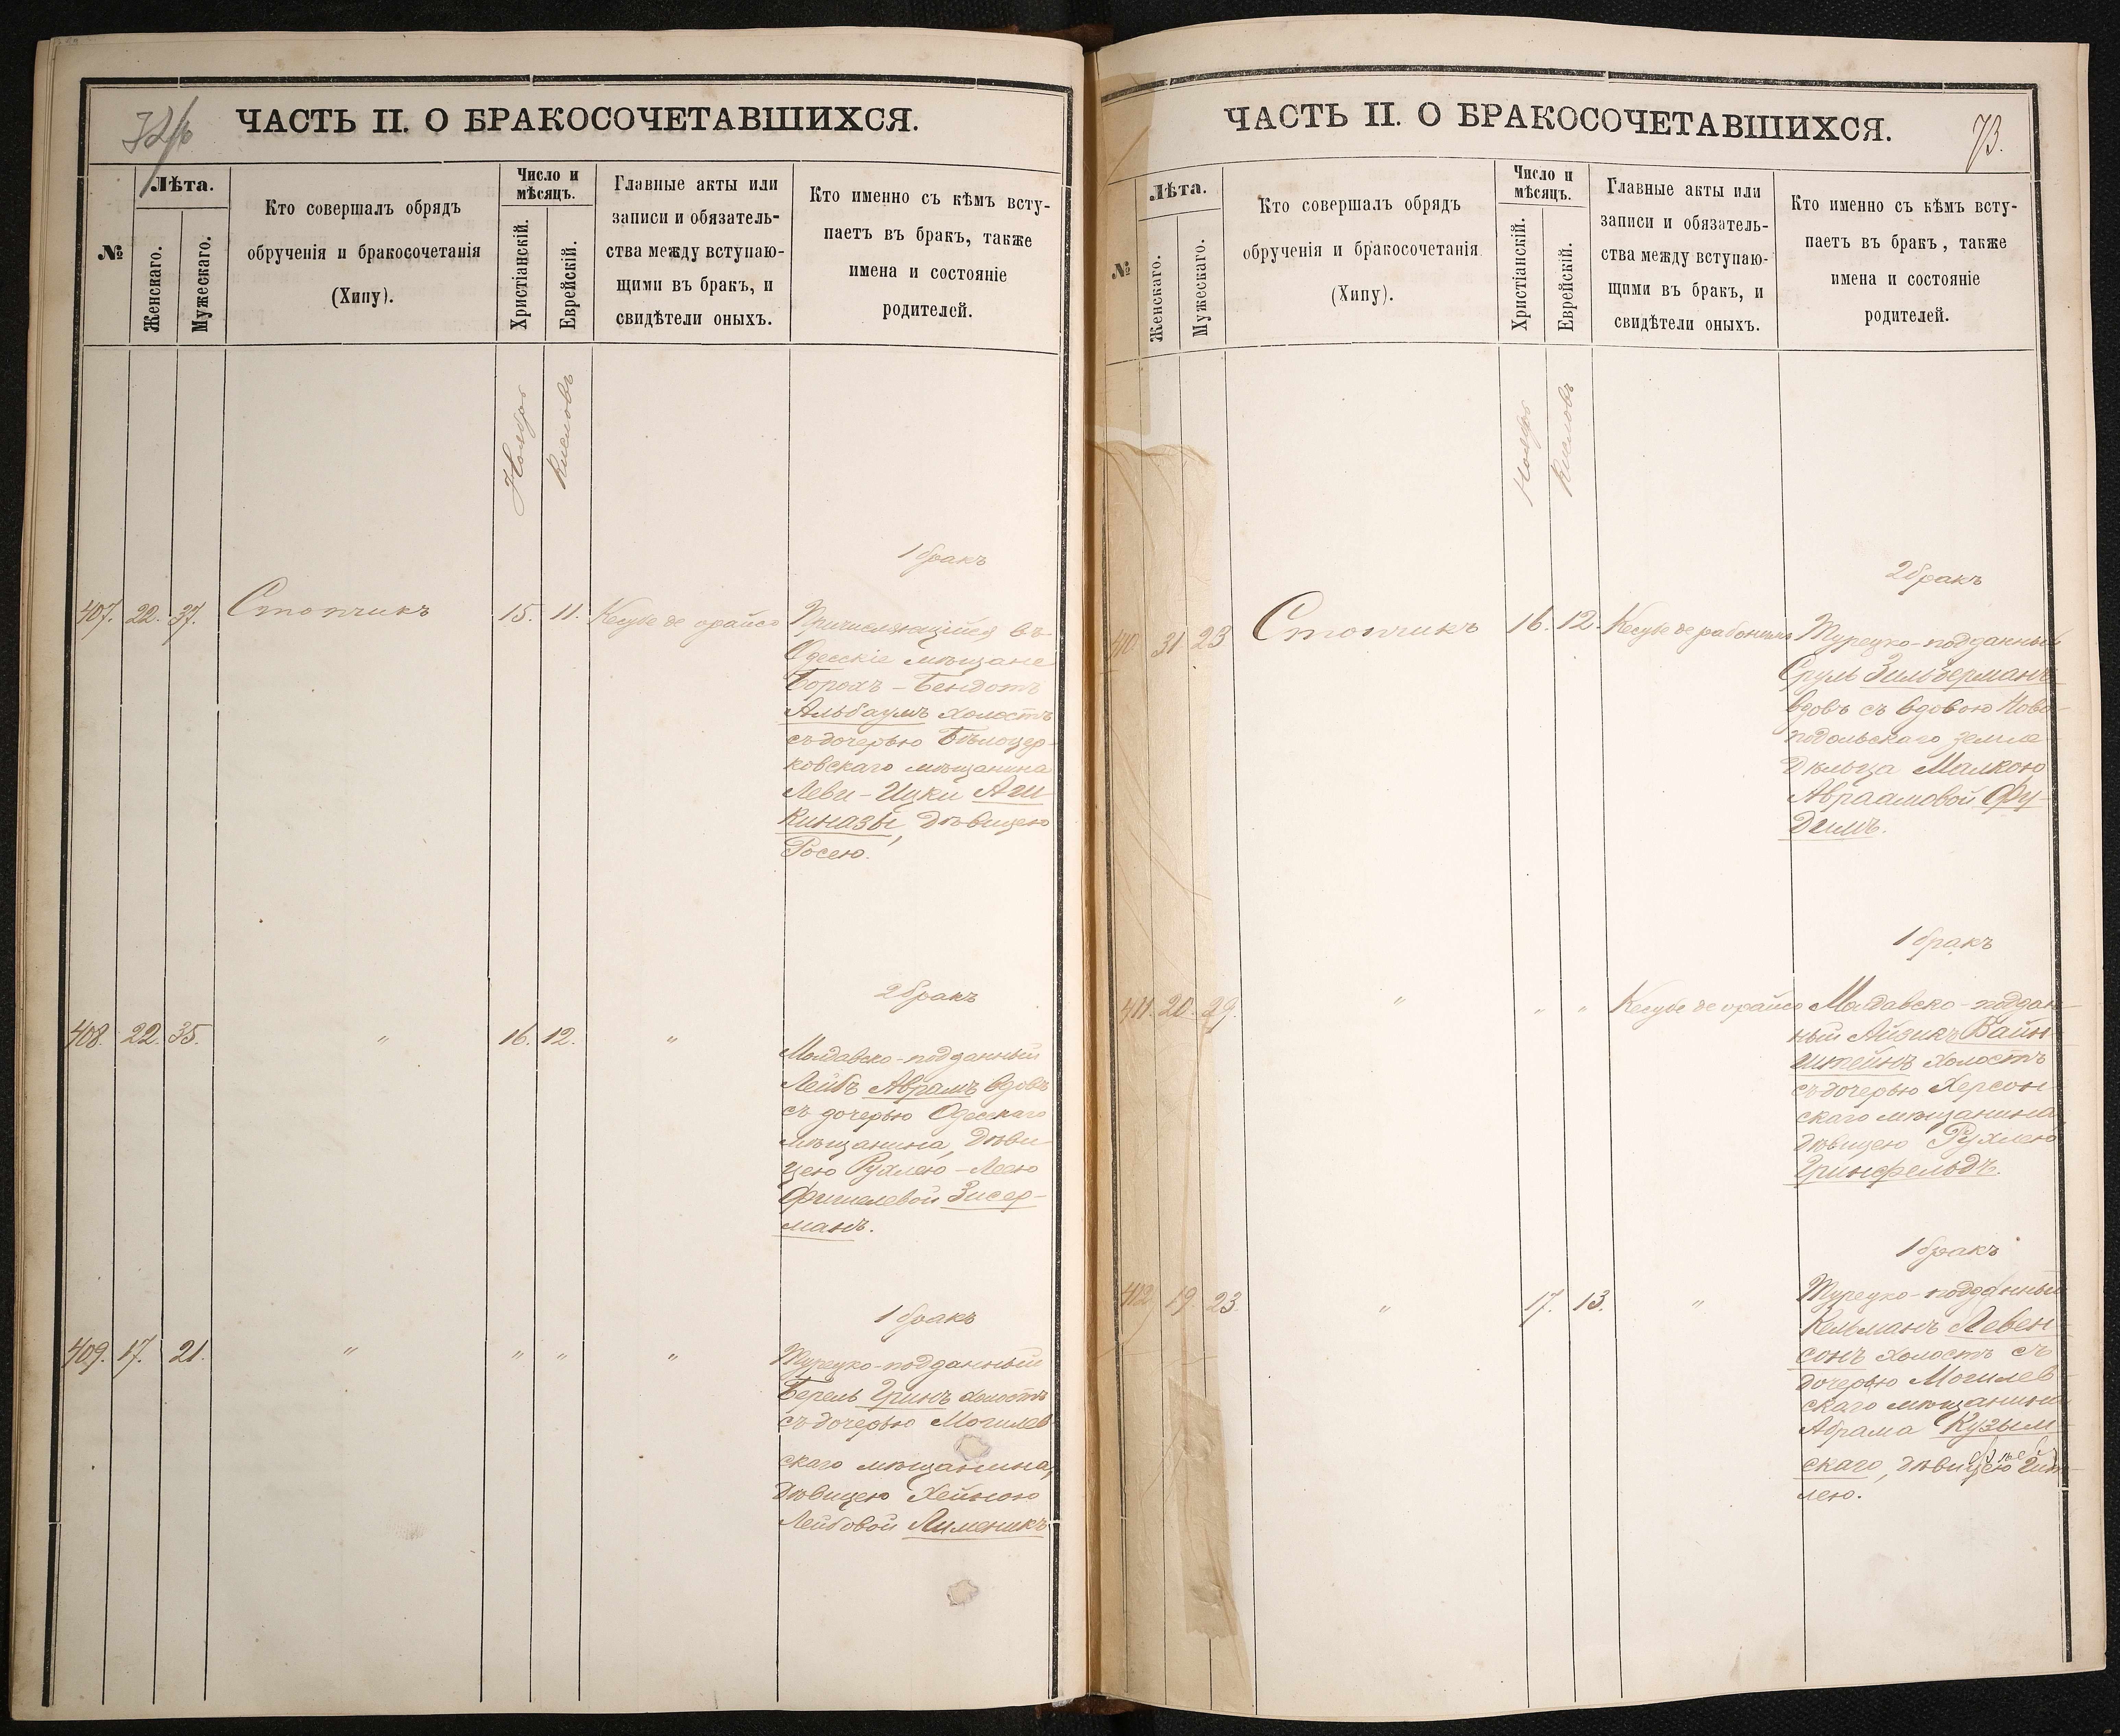 72/б
ЧАСТЬ II. О БРАКОСОЧЕТАВШИХСЯ.
№
Лѣта.
Женскаго.
Мужескаго.
Кто совершалъ обрядъ
обрученія и бракосочетанія
(Хипу).
Число и
мѣсяцъ.
Христіанскій.
Еврейскій.
Главные акты или
записи и обязатель-
ства между вступаю-
щими въ бракъ, и
свидѣтели оныхъ.
Кто именно съ кѣмъ всту-
паетъ въ бракъ, также
имена и состояніе
родителей.
Ноябрь
Кисловъ
1 бракъ
407. 22. 37. Стопчикъ 15. 11. Кесубе де орайсо
Причисляющійся въ
Одесскіе мѣщане
Борохъ-Бендотъ
Альбаумъ холостъ
съ дочерью Бѣлоцер-
ковскаго мѣщанина
Леви-Ицки Аш-
киназы, дѣвицею
Росею.
2 бракъ
408. 22. 35. " 16. 12. "
Молдавско-подданный
Лейбъ Абрамъ вдовъ
съ дочерью Одесскаго
мѣщанина, дѣви-
цею Рухлею-Леею
Фишелевой Зисер-
манъ.
1 бракъ
409. 17. 21. " " " "
Турецко-подданный
Берель Гринъ холостъ
съ дочерью Могилев-
скаго мѣщанина,
дѣвицею Хейною
Лейбовой Лименикъ
73.
ЧАСТЬ II. О БРАКОСОЧЕТАВШИХСЯ.
№
Лѣта.
Женскаго.
Мужескаго.
Кто совершалъ обрядъ
обрученія и бракосочетанія
(Хипу).
Число и
мѣсяцъ.
Христіанскій.
Еврейскій.
Главные акты или
записи и обязатель-
ства между вступаю-
щими въ бракъ, и
свидѣтели оныхъ.
Кто именно съ кѣмъ всту-
паетъ въ бракъ, также
имена и состояніе
родителей.
Ноябрь
Кисловъ
2 бракъ
410. 31. 23 Стопчикъ 16. 12. Кесубе де рабонимъ
Турецко-подданный
Сруль Зильберманъ
вдовъ съ вдовою Ново-
подольскаго земле-
дѣльца Малкою
Авраамовой Фу-
деимъ.
1 бракъ
411. 20. 29. " " " Кесубе де орайсо
Молдавско-поддан-
ный Айзикъ Вайн-
штейнъ холостъ
съ дочерью Херсон-
скаго мѣщанина
дѣвицею Рухлею
Гринфельдъ.
1 бракъ
412. 19. 23. " 17. 13. "
Турецко-подданный
Кельманъ Левен-
сонъ холостъ съ
дочерью Могилев-
скаго мѣщанина
Абрама Кузьм-
скаго, дѣвицею
лею.